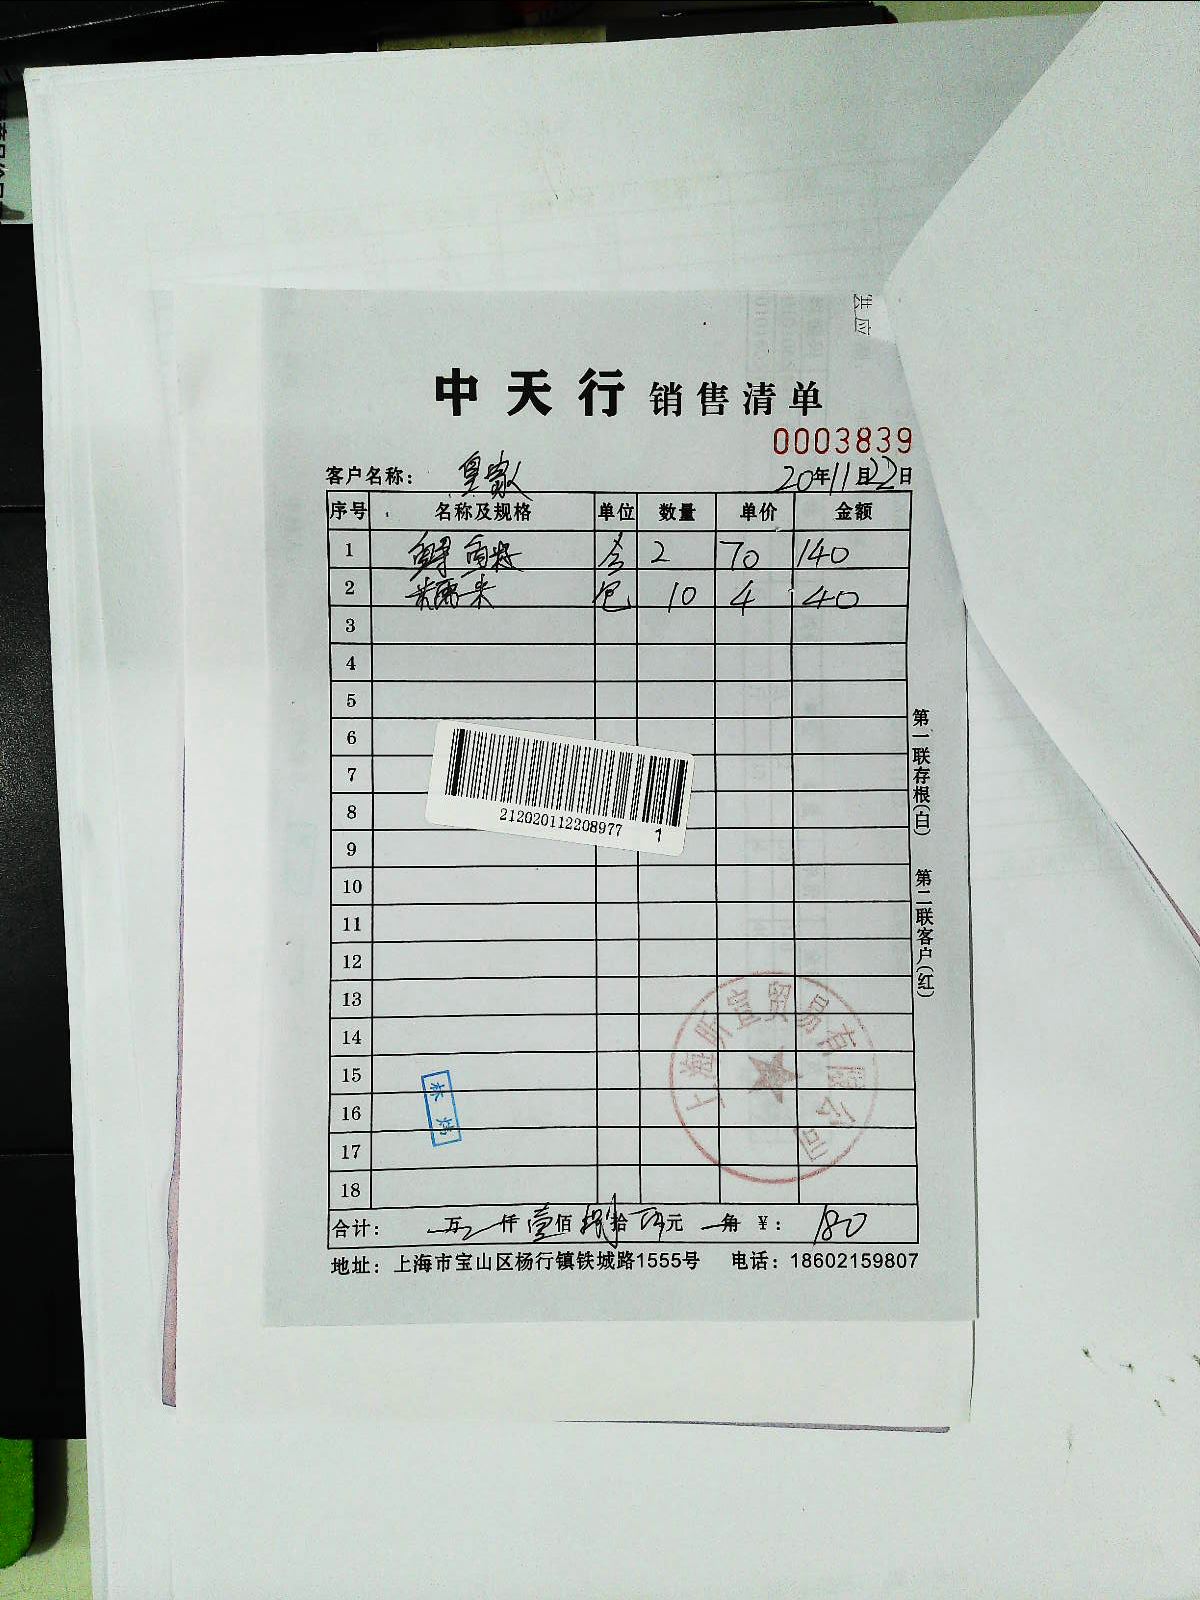 中天行 销售清单
0003839
客户名称： 皇家
20年11月22日
序号 名称及规格 单位 数量 单价 金额
1 2 70 140
2 包 10 4 40
3
4
5
6
7
8
9
10
11
12
13
14
15
16
17
18
212020112208977 1
第一联存根(白) 第二联客户(红)
上海昕宣贸易有限公司
合计： 万 仟 壹佰 捌拾 元 角 ￥： 180
地址：上海市宝山区杨行镇铁城路1555号 电话：18602159807
供应